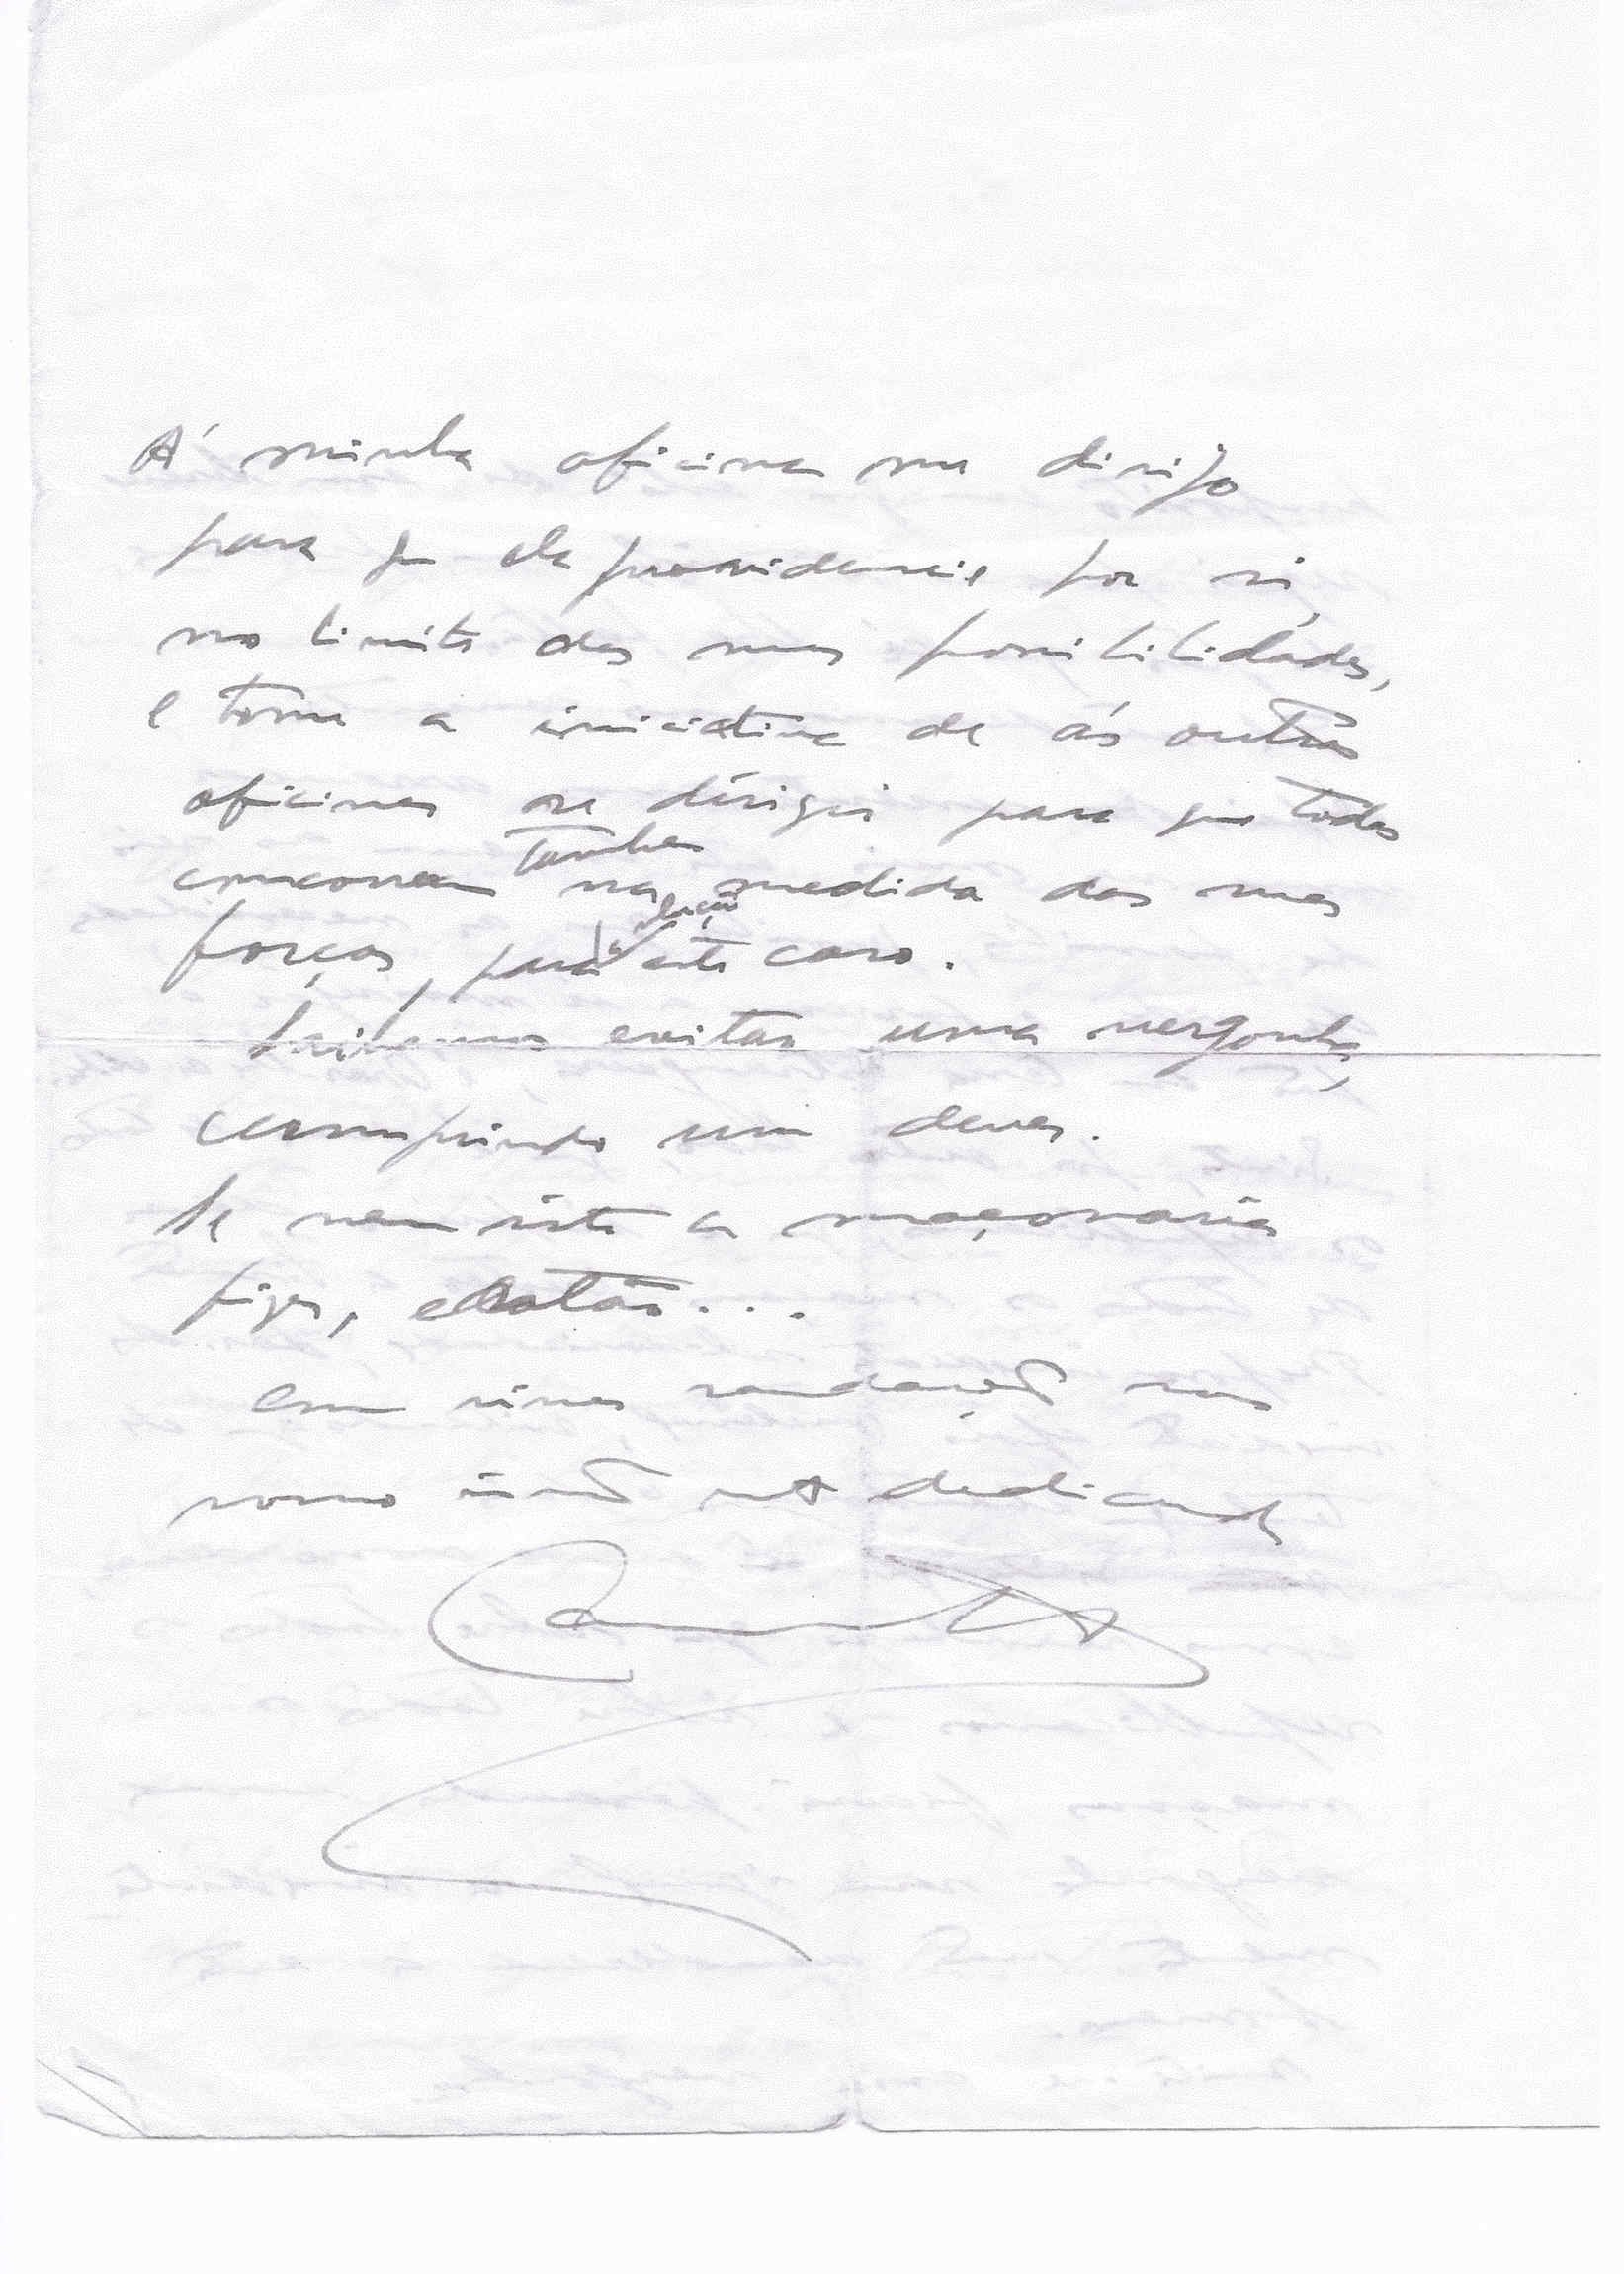 Á minha oficina me dirijo
para que ela providencie por si,
no limite das suas possibilidades,
e tome a iniciativa de ás outras
oficinas se dirigir para que todas
concorram tambem na medida das suas
forças, para a solução deste caso.
Saibamos evitar uma vergonha,
cumprindo um dever.
Se nem isto a maçonaria
fizer, então...
Com viva saudação sou
vosso irmão mto dedicado